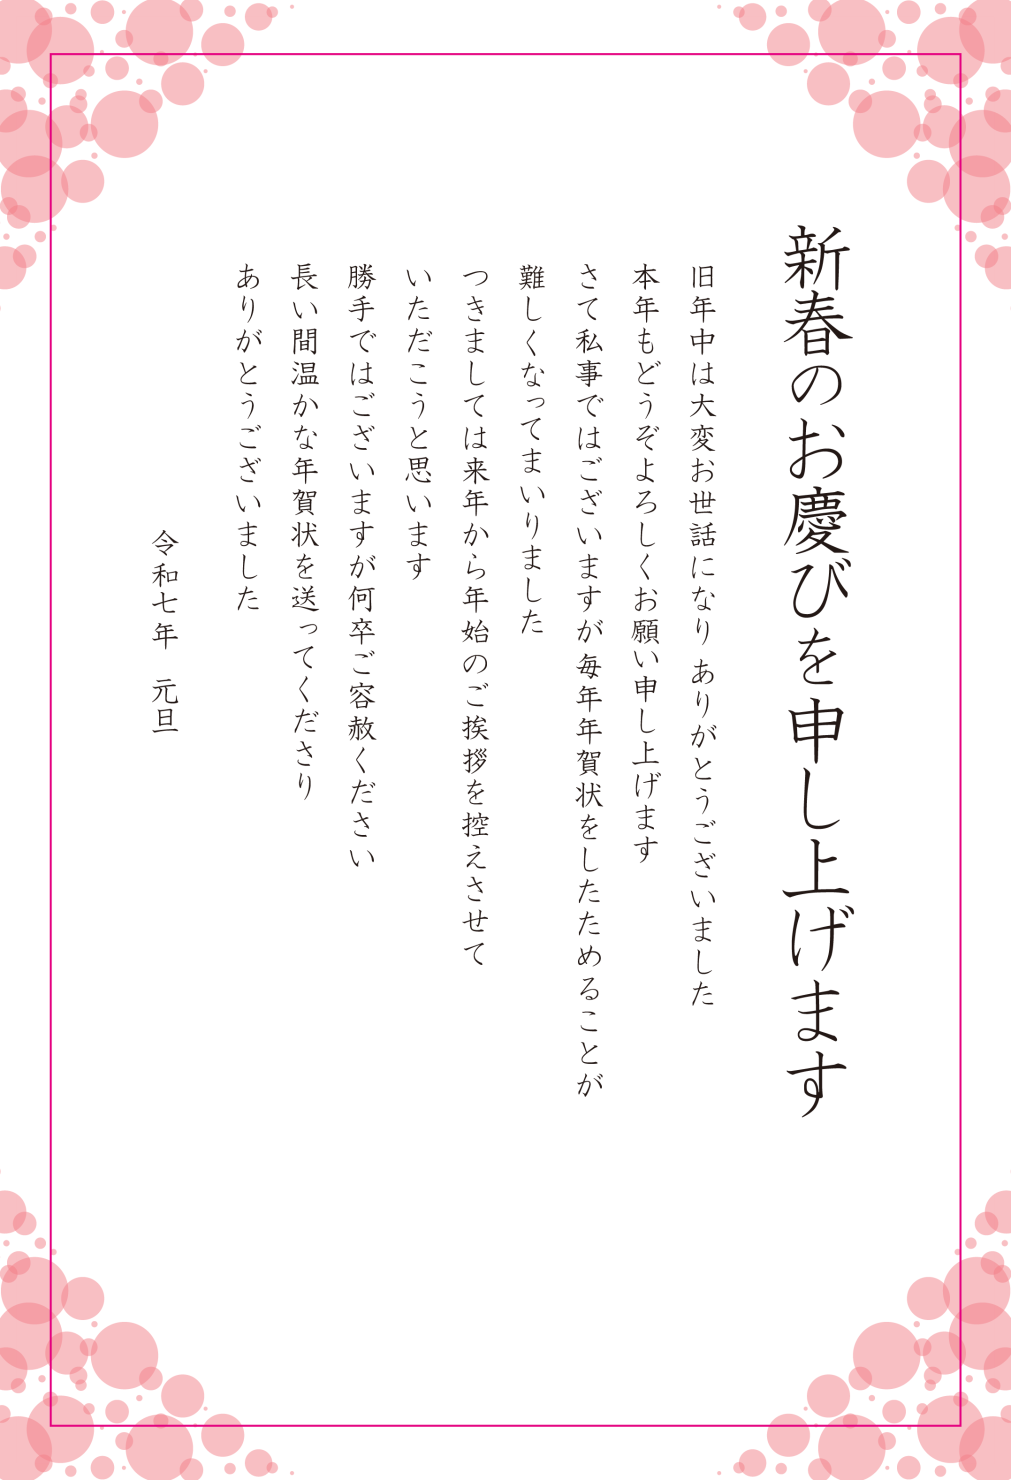 新春のお慶びを申し上げます
旧年中は大変お世話になり ありがとうございました
本年もどうぞよろしくお願い申し上げます
さて私事ではございますが 毎年年賀状をしたためることが
難しくなってまいりました
つきましては来年から年始のご挨拶を控えさせて
いただこうと思います
勝手ではございますが何卒ご容赦ください
長い間温かな年賀状を送ってくださり
ありがとうございました
令和七年 元旦